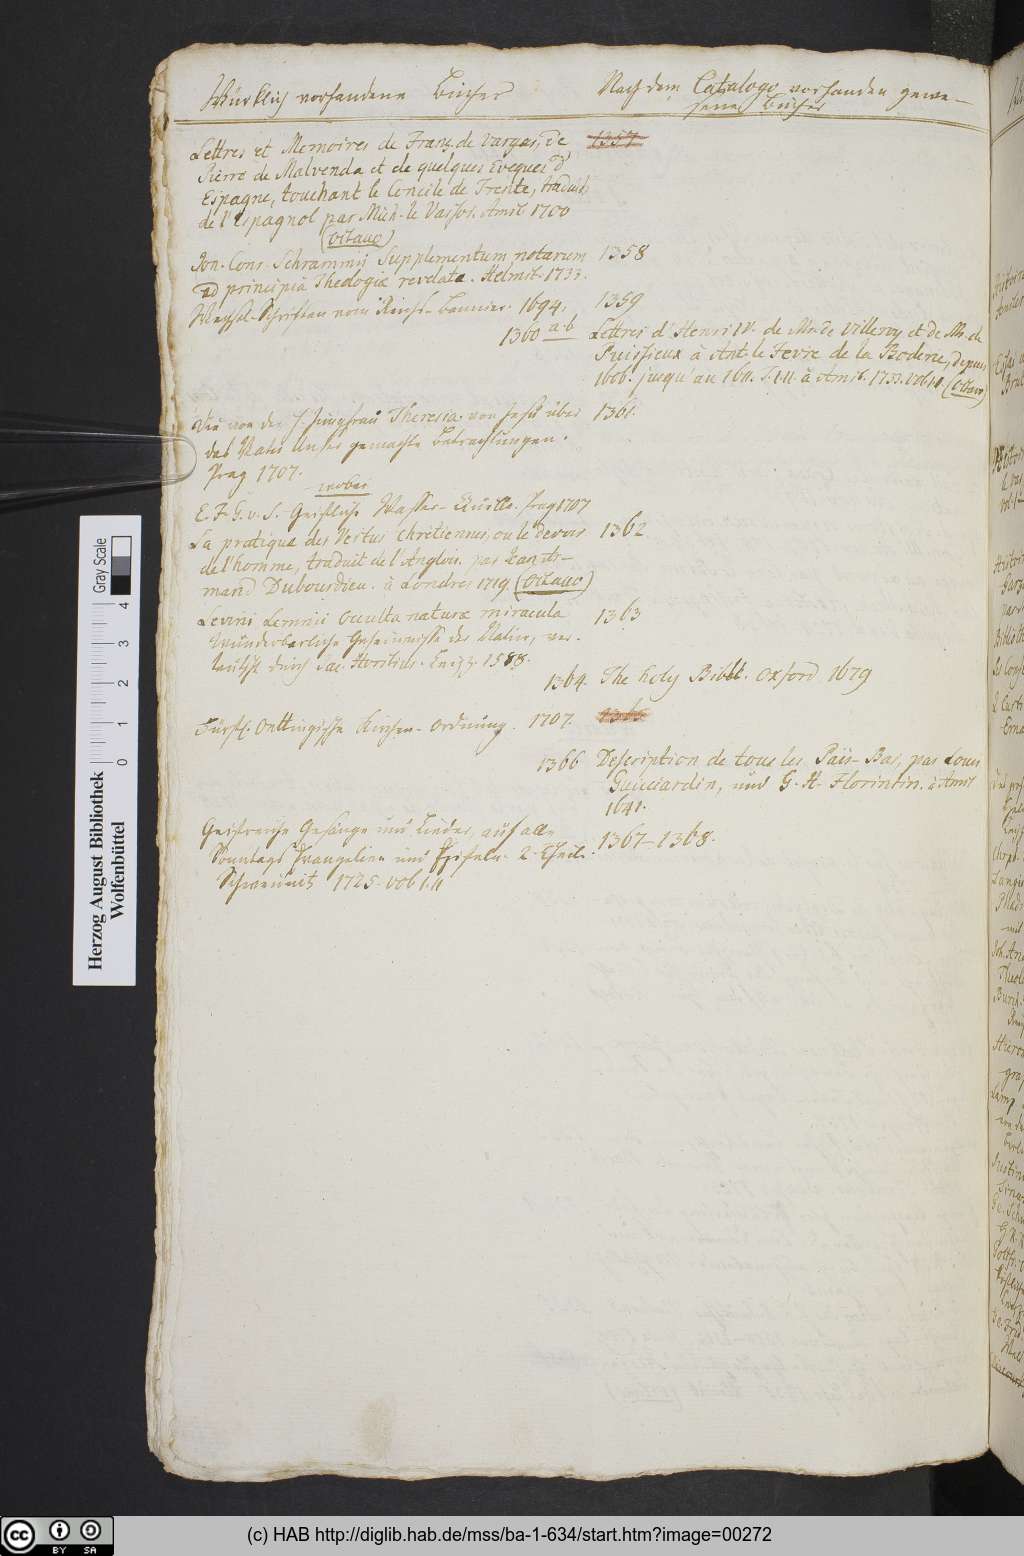 Würklich vorhandene Bücher
Nach dem Catalogo vorhanden gewe-
sene Bücher
Lettres et Memoires de Franç. de Vargas, de
Pierre de Malvenda et de quelques Eveques d'
Espagne, touchant le Concile de Trente, traduits
de l'Espagnol par Mich. le Vassor. Amst 1700
(Octavo)
1357
Jon. Conr. Schrammii Supplementum notarum
ad principia Theologiæ revelatæ. Helmst. 1733.
1358
Wechsel-Schriften vom Reichs-Banner. 1694.
1359
1360 a.b
Lettres d'Henri IV. de Mr. de Villeroy et de Mr. de
Puissieux à Ant. le Fevre de la Boderie, depuis
1606. jusqu'au 1611. T. I-II. à Amst. 1733. vol. I.II (Octavo)
Die von der H. Jungfrau Theresia von Jesu über
das Vater Unser gemachte Betrachtungen.
Prag 1707.
wobei
E. F. G. v. S. Geistliche Wasser-Quelle. Prag 1707
1361.
La pratique des Vertus chretiennes, ou le devoir
de l'homme, traduit de l'Anglois. par
mand Dubourdieu. à Londres 1719. (Octavo)
1362.
Levini Lemnii Occulta naturæ miracula
Wunderbarliche Geheimnisse der Natur, ver-
teutscht durch Jac. Horstius. Leipz. 1588.
1363
1364. The holy Bibbt. Oxford 1679
Fürstl. Oettingische Kirchen-Ordnung. 1707.
1365
1366 Description de tous les Païs-Bas, par Louis
Guicciardin, und G. H. Florintin. à Amst
1641.
Geistreiche Gesänge und Lieder, auf alle
Sonntags Evangelien und Episteln. 2. Theile.
1725. vol I.II
1367-1368.
Herzog August Bibliothek
Wolfenbüttel
Gray Scale
0 1 2 3 4
cc BY SA
(c) HAB http://diglib.hab.de/mss/ba-1-634/start.htm?image=00272